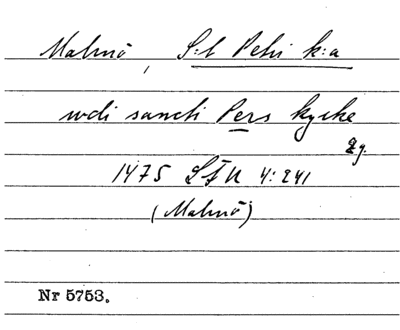 Malmö, S:t Petri k:a
wdi sancti Pers kyrke
Lg.
1475 LÅU 4:241
(Malmö)
Nr 5753.